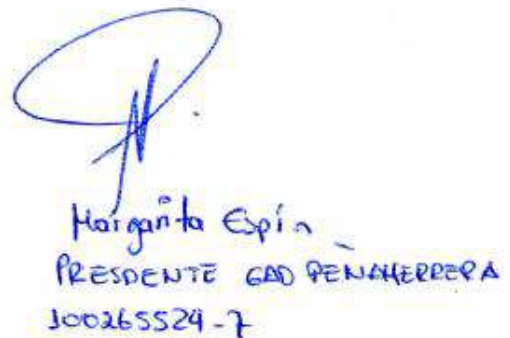 Margarita Espín
PRESDENTE GAD PEÑAHERRERA
100265524-7